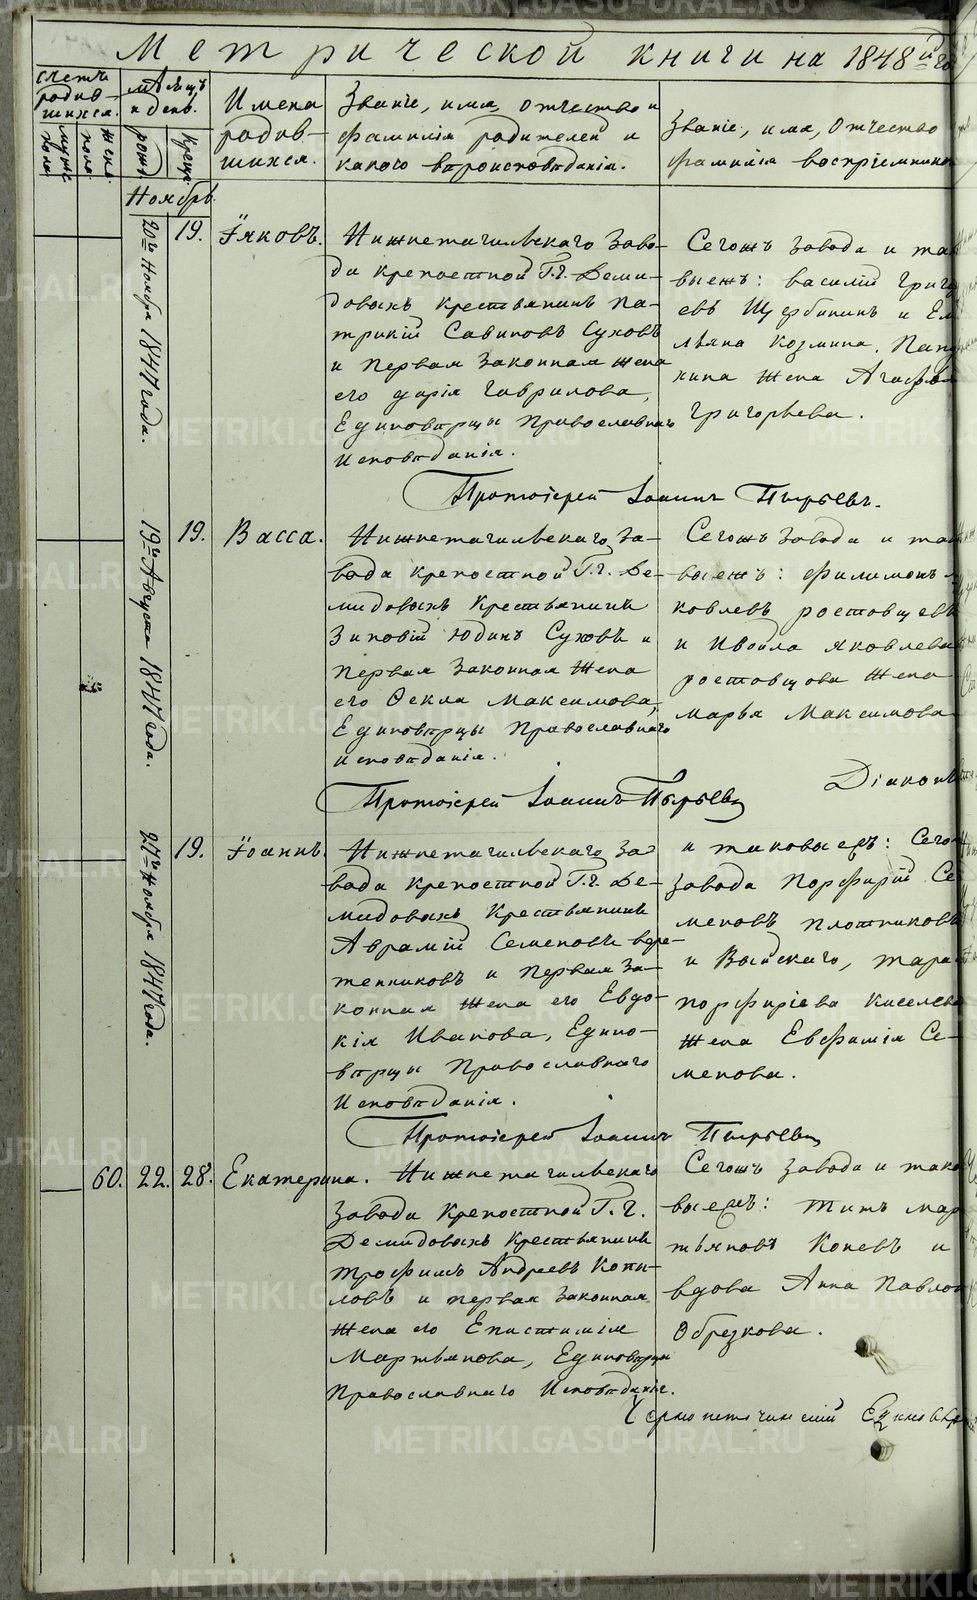 Метрической книги на 1848й го
счетъ родив- шихся.
мѣсяцъ и день.
Имена родив- шихся.
Званіе, имя, отчество и
фамилія родителей и
какого вѣроисповѣданія.
Званіе, имя, отчество
фамилія воспріемнико
мужс: пола
женс: пола.
рожд
крещ:
Ноябрь.
20го Ноября 1847 года.
19.
Їяковъ.
Нижнетагильскаго Заво-
да крепостной Г.г. Деми-
довыхъ крестьянинъ Па-
трикій Савиновъ Суховъ
и первая законная жена
его Дарія Гаврилова,
Единовѣрцы Православнаго
Исповѣданія.
Сегожъ завода и так
выежъ: василій Григор
евъ Щербининъ и Ем
льяна Козмина. Пан
нина жена Агафья
Григорьева.
Протоіерей Іоаннъ Пырьевъ.
19го Августа 1847 года.
19.
Васса.
Нижнетагильскаго за-
вода крепостной Г.г. Де-
мидовыхъ Крестьянинъ
Зиновій Юдинъ Суховъ и
первая законная жена
его Ѳекла Максимова,
Единовѣрцы Православнаго
исповѣданія.
Сегожъ завода и так
выежъ: Филимонъ я
ковлевъ ростовщевъ
и Ивойла яковлева
ростовщова жена
марья Максимова
Діаконъ
Протоіерей Іоаннъ Пырьевъ
27го Ноября 1847 года.
19.
Їоаннъ.
Нижнетагильскаго за
вода крепостной Г.г. Де-
мидовыхъ Крестьянинъ
Аврамій Семеновъ вере-
тенниковъ и первая за-
конная жена его Евдо-
кія Иванова, Едино-
вѣрцы Православнаго
Исповѣданія.
и таковыежъ: Сего
завода Порфирій Се
меновъ Плотниковъ
и Выйскаго, тара
порфиріева Киселева
жена Евфимія Се-
менова.
Протоіерей Іоаннъ Пырьевъ
60.
22.
28.
Екатерина.
Нижнетагильскаго
завода крепостной Г.г.
Демидовыхъ крестьянинъ
трофимъ Андреевъ Копы-
ловъ и первая законная
жена его Епистимія
Мартьянова, Единовѣрцы
Православнаго Исповѣданія.
Сегожъ завода и тако
выежъ: титъ мар
тьяновъ Коневъ и
вдова Анна Павлов
Обрезкова.
METRIKI.GASO-URAL.RU